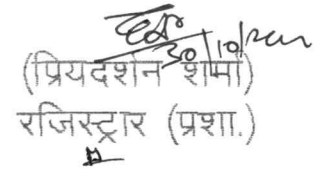 30/10/
(प्रियदर्शन शर्मा)
रजिस्ट्रार (प्रशा.)